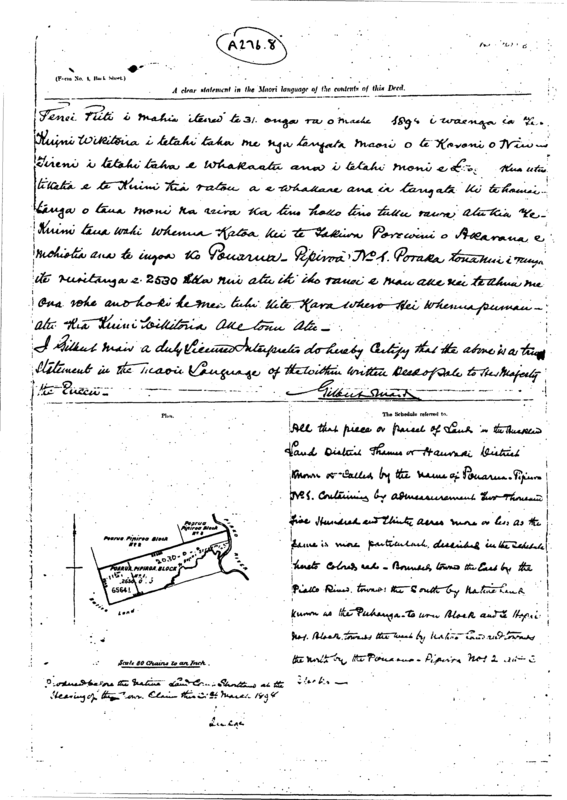 A276.8
(Form No. 1, Back Sheet.)
A clear statement in the Maori language of the contents of this Deed.
Tenei Tiiti i mahia i te ra te 31 onga ra o maehe 1898 i waenga ia Te
Kuini Wikitoria i tetahi taha me nga tangata maori o te Koroni o Niu
Tireni i tetahi taha e Whakaatu ana i tetahi moni e £ Kua utu
e te Kuini kia ratou a e whakaae ana ia tangata ki te
tanga o taua moni na reira ka tino hoko tino tuku rawa atu kia Te
Kuini taua wahi whenua katoa kei te Takiwa Porowini o Akarana e
mohiotia ana te ingoa ko Pouarua - Pipiroa No 1. Poraka tona nui i runga
i te ruritanga e 2530 eka nui atu iti iho ranei e mau ake nei te ahua me
ona rohe ano hoki he mea tuhi kite Kara whero Hei whenua pumau
atu kia Kuini Wikitoria ake tonu atu -
I Gilbert Mair a duly Licensed Interpreter do hereby Certify that the above is a true
Statement in the Maori Language of the within written Deed of Sale to Her Majesty
the Queen -
Gilbert Mair
Plan.
Peorua Pipiroa Block
Nº 2
Peorua Pipiroa Block
Nº 3
2030-0
POARUA PIPIROA BLOCK
Nº 1.
6564 1
River
Native Land
Scale 80 Chains to an Inch.
Produced before the Native Land Court Shortland at the
Hearing of the Crown Claim this March 1898
Judge
The Schedule referred to.
All that piece or parcel of Land in the Auckland
Land District Thames or Hauraki District
Known or Called by the name of Pouarua - Pipiroa
No 1. Containing by admeasurement Two Thousand
Five Hundred and Thirty acres more or less as the
same is more particularly described in the Schedule
hereto Colored red - Bounded towards the East by the
Piako River, towards the South by Native Land
Known as the Puhanga - Block and
No 1. Block, towards the West by Native Land and towards
the North by the Pouarua - Pipiroa Nos 2 and 3
Blocks -